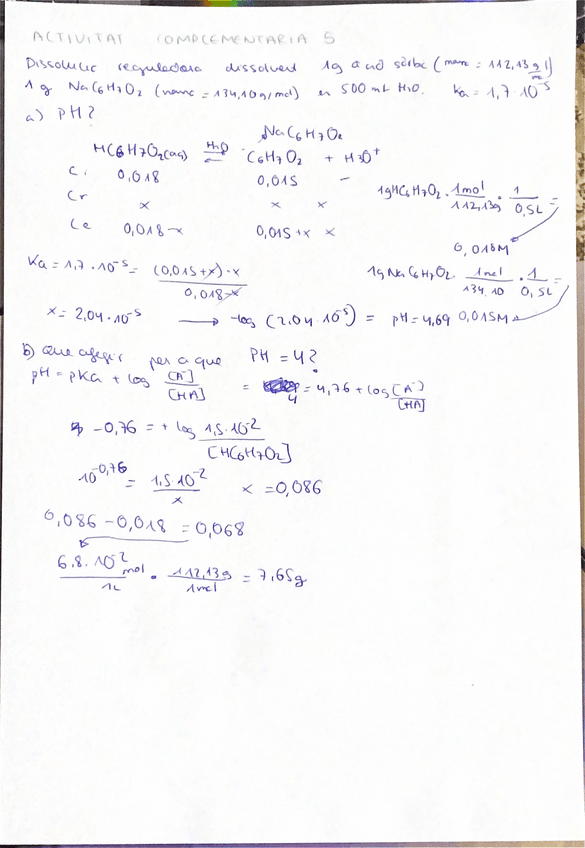 ACTIVITAT COMPLEMENTARIA 5
Dissolució reguladora dissolvent 1g àcid sòrbic (mame = 112,13 g/mol)
1 g NaC6H7O2 (mame = 134,10 g/mol) en 500 mL H2O. Ka = 1,7·10^-5
a) pH?
NaC6H7O2
HC6H7O2(aq) ⇌ H2O C6H7O2 + H3O+
Ci 0,018 0,015 –
Cr x x x
Ce 0,018-x 0,015+x x
1gHC6H7O2 · 1mol/112,13g · 1/0,5L =
0,018M
Ka = 1,7·10^-5 = (0,015+x)·x / 0,018-x
1g NaC6H7O2 · 1mol/134,10 · 1/0,5L =
0,015M
x = 2,04·10^-5 → -log (2,04·10^-5) = pH = 4,69
b) Que afegir per a que PH = 4?
pH = pKa + log [A-]/[HA] = 4 = 4,76 + log [A-]/[HA]
-0,76 = + log 1,5·10^-2/[HC6H7O2]
10^-0,76 = 1,5·10^-2/x x = 0,086
0,086 - 0,018 = 0,068
6,8·10^-2 mol/1L · 112,13g/1mol = 7,65g